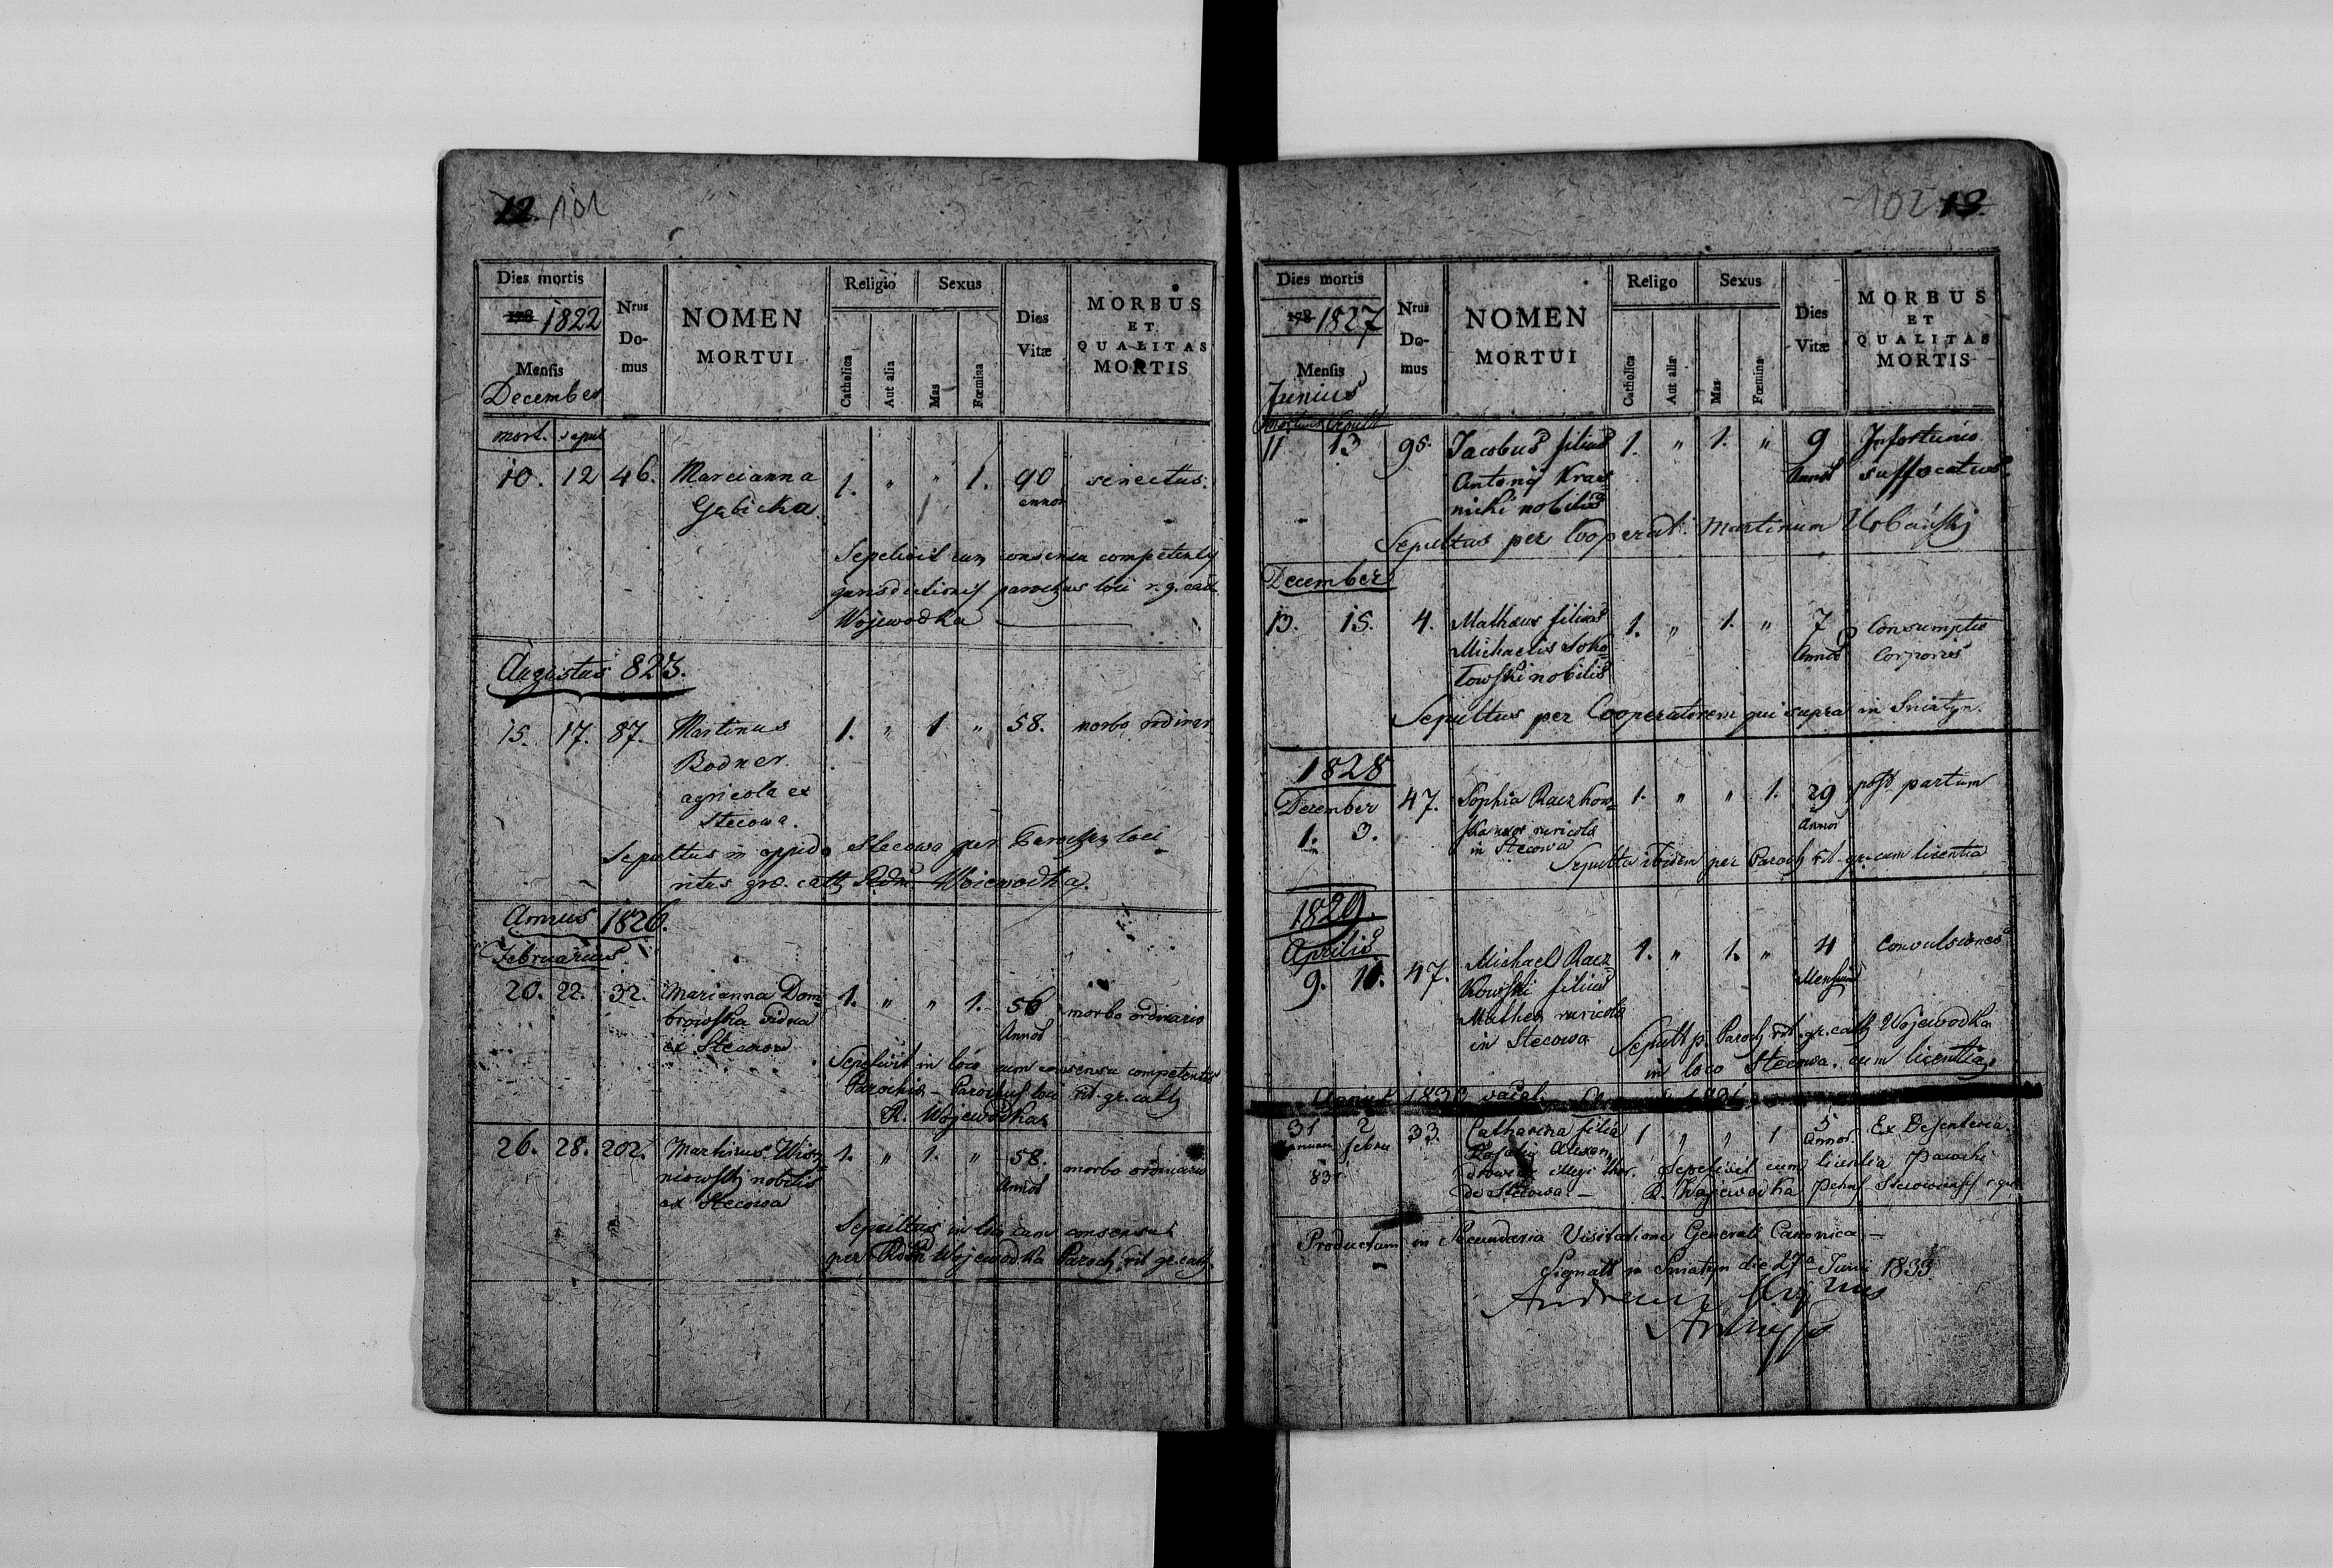 12. 101
Dies mortis
178 1822
Mensis
December
Nrus
Do-
mus
NOMEN
MORTUI
Religio
Catholica
Aut alia
Sexus
Mas
Fœmina
Dies
Vitæ
MORBUS
ET
QUALITAS
MORTIS
mort. sepul
10. 12 46. Marcianna 1. " " 1. 90 senectus.
Gębicka annor
Sepelivit cum consensu competentis
jurisdictionis parochus loci r. g. cath.
Wojewodka
Augustus 823.
15. 17. 87. Martinus 1. " 1 " 58. morbo ordinar
Bodner.
agricola ex
Stecowa.
Sepultus in oppido Stecowa per Parochum loci
ritus gre. cath. Wojewodka.
Annus 1826.
Februarius.
20. 22. 32. Marianna Dom= 1. " " 1. 56 morbo ordinario
browska vidua Annos
ex Stecowa
Sepelivit in loco cum consensu competentis
Parochia - Parochus loci rit. gr. cath
R. Wojewodka
26. 28. 202. Martinus Wisz= 1. " 1. " 58. morbo ordinario
niowski nobilis Annos
ex Stecowa
Sepultus in loco cum consensu
per Wojewodka Paroch. rit. gr. cath.
102 13.
Dies mortis
178 1827
Mensis
Junius
Nrus
Do-
mus
NOMEN
MORTUI
Religo
Catholica
Aut alia
Sexus
Mas
Fœmina
Dies
Vitæ
MORBUS
ET
QUALITAS
MORTIS
Mortuus Sepult
11 13 95. Jacobus filius 1. " 1. " 9 Infortunio
Antonij Kras= Annos suffocatus
nicki nobilis
Sepultus per Cooperat. Martinum Urbański
December
13. 15. 4. Mathæus filius 1. " 1. " 7 Consumptio
Michaelis Soko= Annos Corporis
łowski nobilis
Sepultus per Cooperatorem qui supra in Sniatyn.
1828
December 47. Sophia Raczkow= 1. " " 1. 29 post partum
1. 3. ska uxor ruricolæ Annor
in Stecowa
Sepulta ibidem per Paroch rit. gr. cum licentia
1829.
Aprilis.
9. 11. 47. Michael Racz= 1. " 1. " 4 Convulsiones
kowski filius Mensium
Mathei ruricolæ
in Stecowa
Sepult p. Paroch rit. gr. cath Wojewodka
in loco Stecowa. cum licentia.
Annus 1830 vacat.
31 2 33. Catharina filia 1 " " 1 5 Ex Desenteria
Januari febru Rosaliæ Alexan Annor
831 drowicz illegi thor.
de Stecowa -
Sepelivit cum licentia Parochi
R. Wojewodka
Productum in Secundaria Visitatione Generali Canonica -
Signatt in Sniatyn die 27a Junii 1833
Andreas